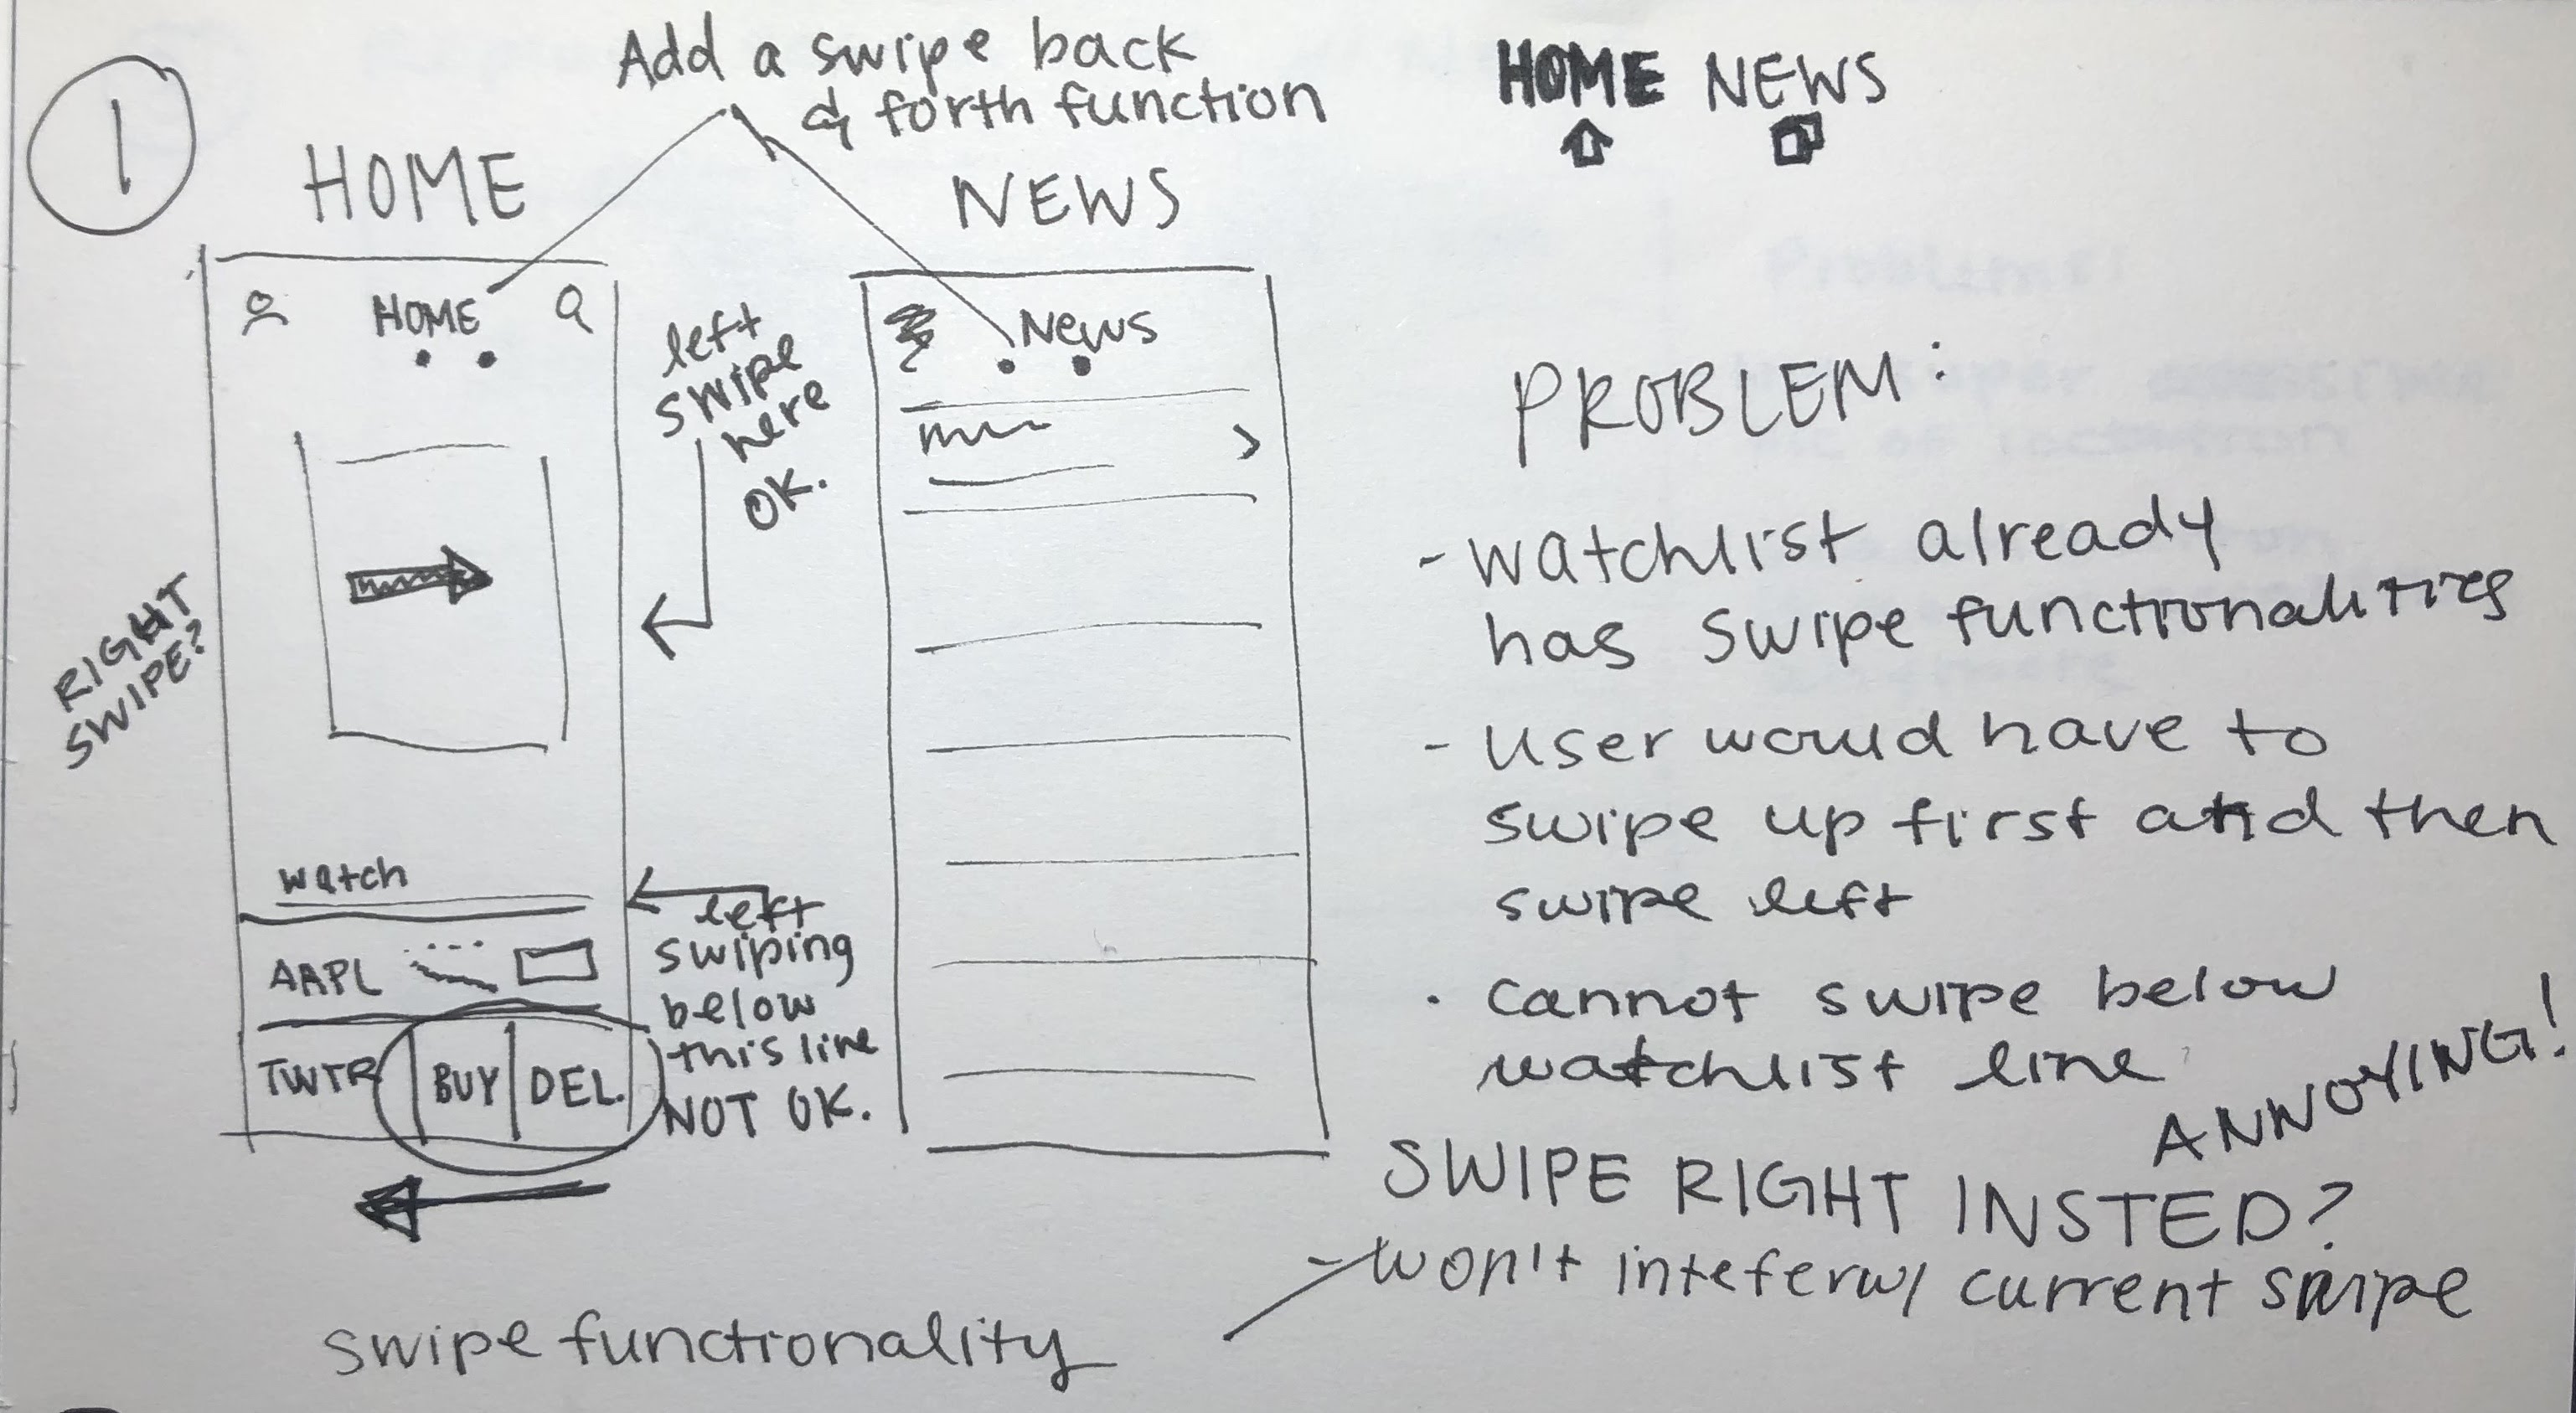 1
Add a swipe back
& forth function
HOME NEWS
HOME
NEWS
HOME
News
left
swipe
here
OK.
RIGHT
SWIPE?
watch
AAPL
TWTR BUY DEL.
left
swiping
below
this line
NOT OK.
PROBLEM:
- watchlist already
has swipe functionalities
- user would have to
swipe up first and then
swipe left
· cannot swipe below
watchlist line
ANNOYING!
SWIPE RIGHT INSTED?
- won't intefer w/ current swipe
swipe functionality